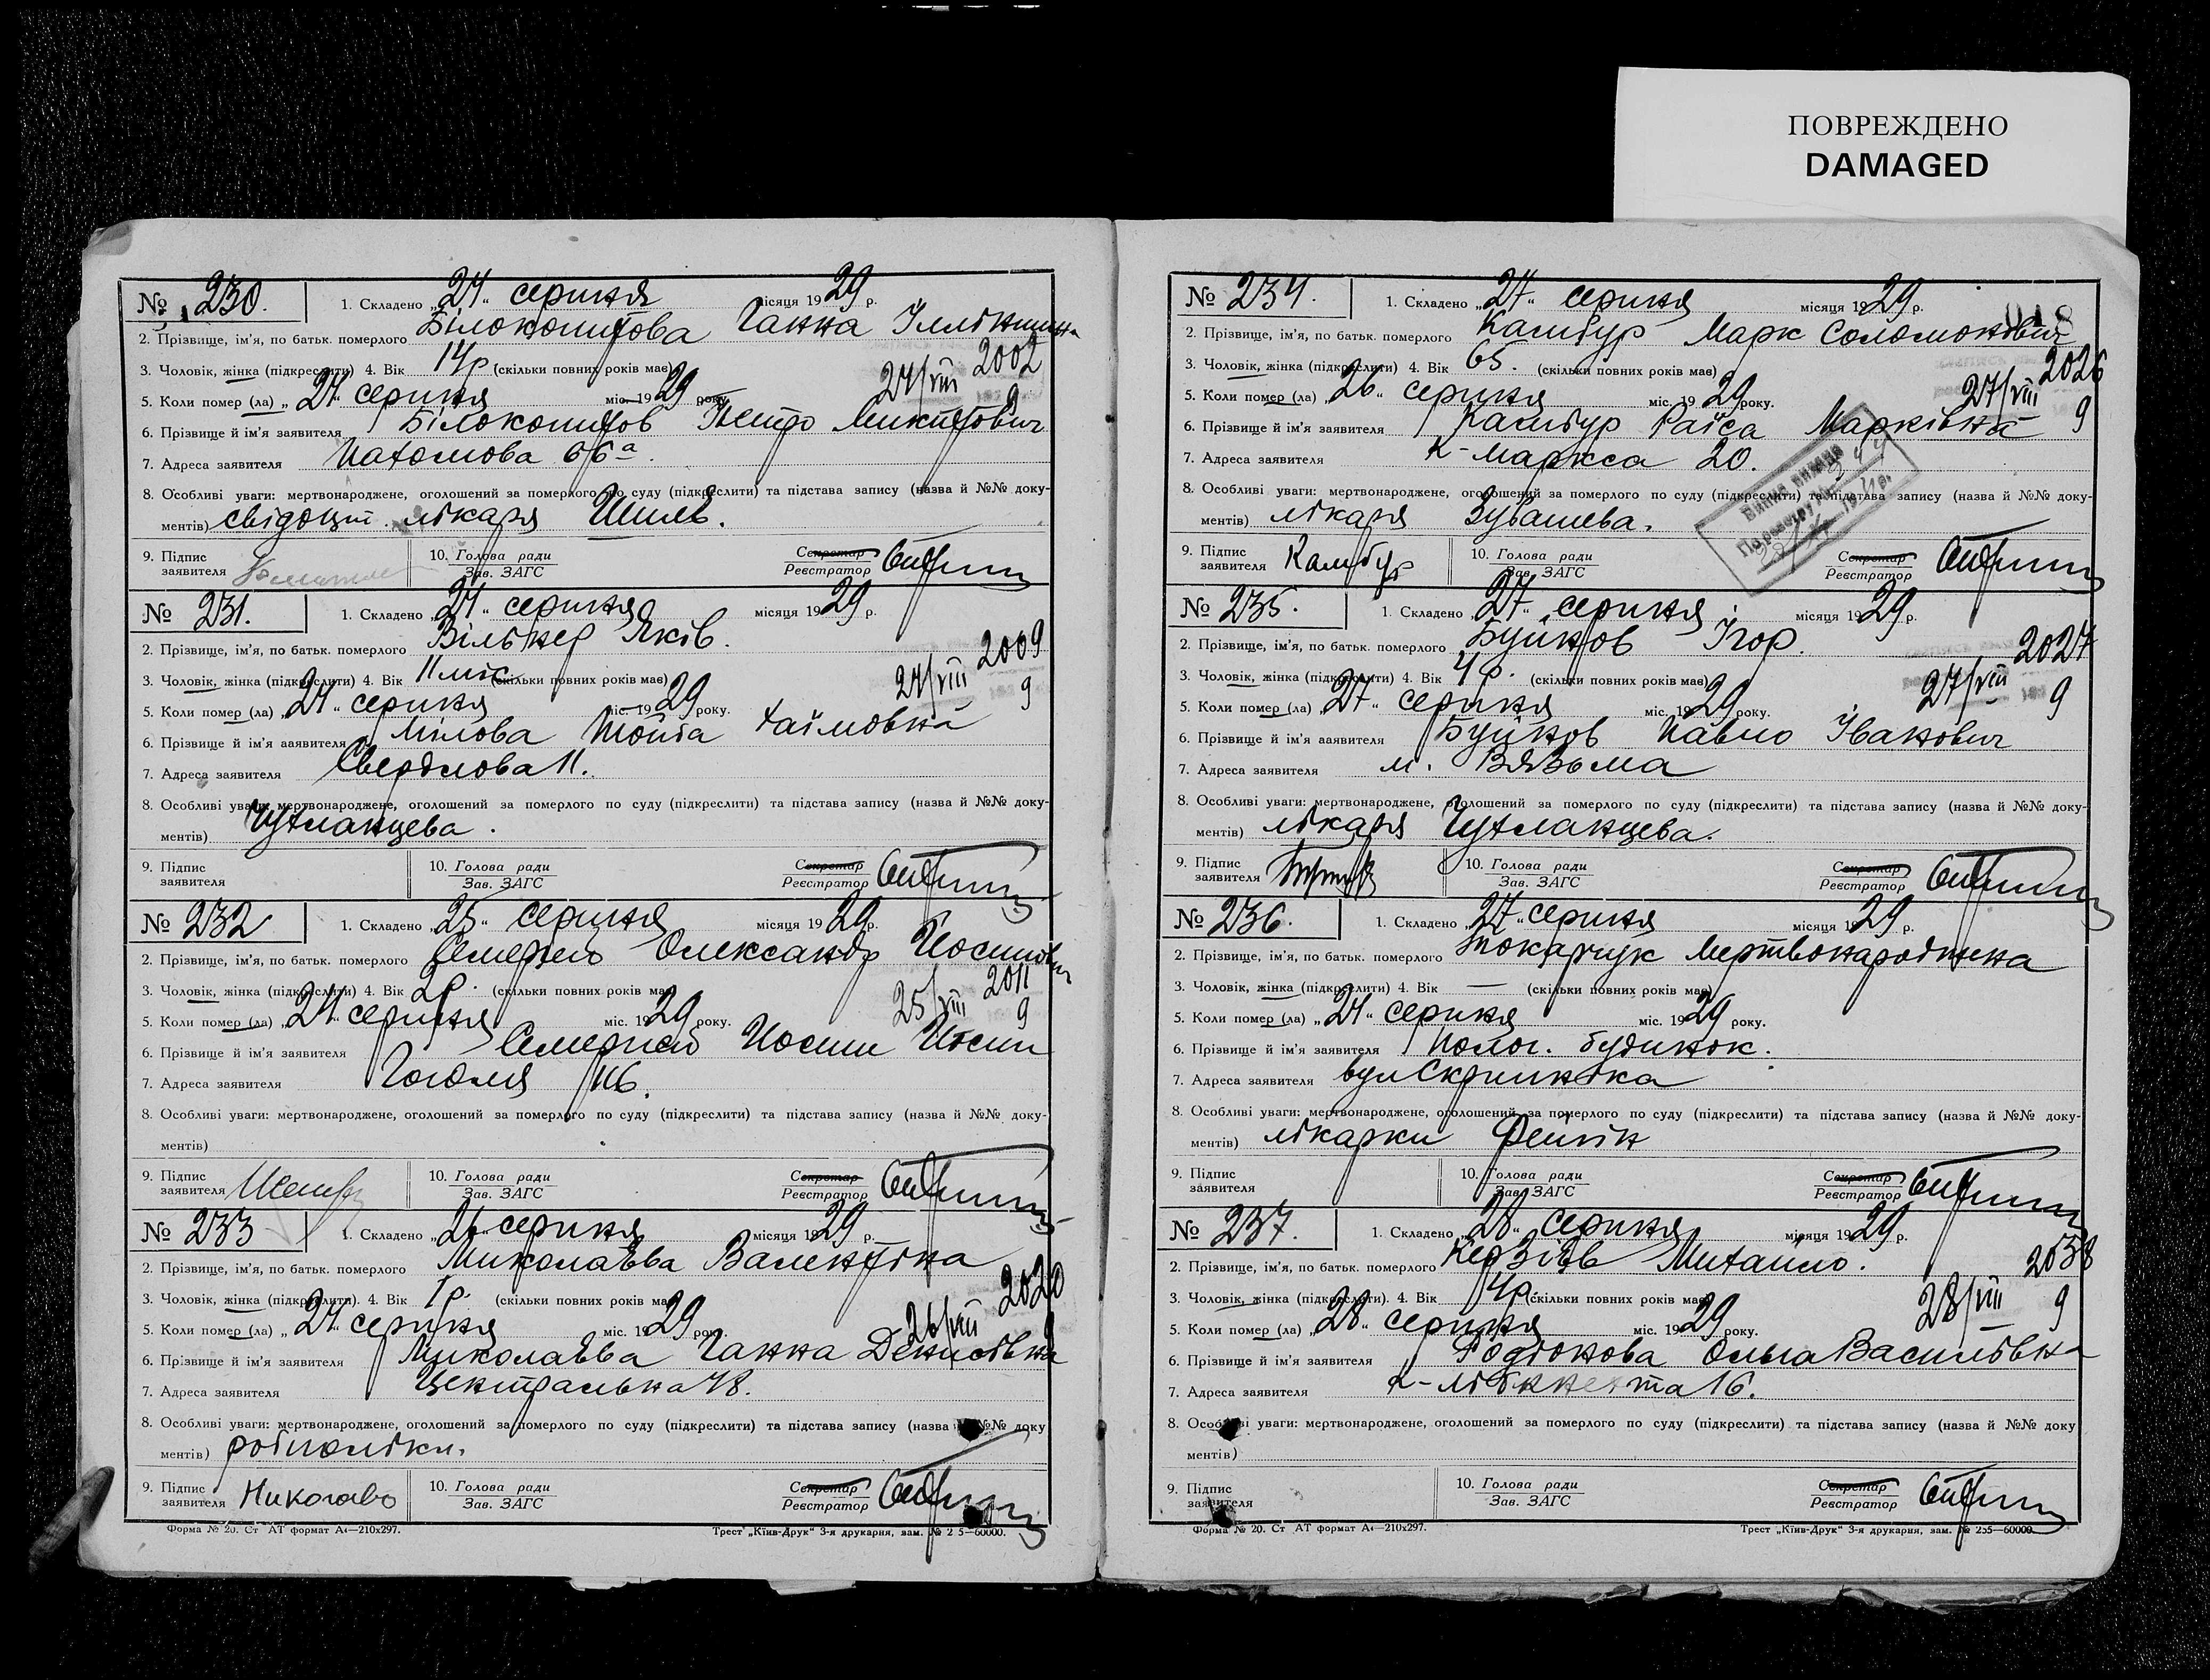 ПОВРЕЖДЕНО
DAMAGED
№ 230. 1. Складено „24“ серпня місяця 1929 р.
2. Прізвище, ім'я, по батьк. померлого Білокопитова Ганна
3. Чоловік, жінка (підкреслити) 4. Вік 14р (скільки повних років має) 24/VIII 2002
5. Коли помер (ла) „24“ серпня міс. 1929 року. 9
6. Прізвище й ім'я заявителя Білокопитов Петро Микитович
7. Адреса заявителя Пахомова 66а.
8. Особливі уваги: мертвонароджене, оголошений за померлого по суду (підкреслити) та підстава запису (назва й №№ доку-
ментів) свідоцт. лікаря
9. Підпис заявителя 10. Голова ради Зав. ЗАГС Секретар Реєстратор
№ 231. 1. Складено „24“ серпня місяця 1929 р.
2. Прізвище, ім'я, по батьк. померлого Вількер Яків.
3. Чоловік, жінка (підкреслити) 4. Вік 11 міс (скільки повних років має) 24/VIII 2009
5. Коли помер (ла) „24“ серпня міс. 1929 року. 9
6. Прізвище й ім'я заявителя Мілова Хаїмовна
7. Адреса заявителя Свердлова 11.
8. Особливі уваги: мертвонароджене, оголошений за померлого по суду (підкреслити) та підстава запису (назва й №№ доку-
ментів) Чухланцева.
9. Підпис заявителя 10. Голова ради Зав. ЗАГС Секретар Реєстратор
№ 232 1. Складено „25“ серпня місяця 1929 р.
2. Прізвище, ім'я, по батьк. померлого Олександр Йосипович
3. Чоловік, жінка (підкреслити) 4. Вік 2р. (скільки повних років має) 25/VIII 2011
5. Коли помер (ла) „24“ серпня міс. 1929 року. 9
6. Прізвище й ім'я заявителя Йосип Йосип
7. Адреса заявителя Гоголя 116.
8. Особливі уваги: мертвонароджене, оголошений за померлого по суду (підкреслити) та підстава запису (назва й №№ доку-
ментів)
9. Підпис заявителя 10. Голова ради Зав. ЗАГС Секретар Реєстратор
№ 233 1. Складено „26“ серпня місяця 1929 р.
2. Прізвище, ім'я, по батьк. померлого Миколаєва Валентіна
3. Чоловік, жінка (підкреслити). 4. Вік 1р. (скільки повних років має) 26/VIII 2020
5. Коли помер (ла) „24“ серпня міс. 1929 року.
6. Прізвище й ім'я заявителя Миколаєва Ганна Денисівна
7. Адреса заявителя Центральна 48.
8. Особливі уваги: мертвонароджене, оголошений за померлого по суду (підкреслити) та підстава запису (назва й №№ доку
ментів) робполіки.
9. Підпис заявителя 10. Голова ради Зав. ЗАГС Секретар Реєстратор
Форма № 20. Ст АТ формат А4—210х297. Трест „Київ-Друк“ 3-я друкарня, зам. № 2 5—60000.
№ 234. 1. Складено „27“ серпня місяця 1929 р. 048
2. Прізвище, ім'я, по батьк. померлого Камбур Марк Соломонович
3. Чоловік, жінка (підкреслити) 4. Вік 65. (скільки повних років має) 27/VIII 2026
5. Коли помер (ла) „26“ серпня міс. 1929 року. 9
6. Прізвище й ім'я заявителя Камбур Раїса Марківна
7. Адреса заявителя К-Маркса 20.
8. Особливі уваги: мертвонароджене, оголошений за померлого по суду (підкреслити) та підстава запису (назва й №№ доку-
ментів) лікаря Зубашева.
9. Підпис заявителя Камбур 10. Голова ради Зав. ЗАГС Секретар Реєстратор
№ 235. 1. Складено „27“ серпня місяця 1929 р.
2. Прізвище, ім'я, по батьк. померлого Буйнов Ігор.
3. Чоловік, жінка (підкреслити) 4. Вік 4р. (скільки повних років має) 27/VIII 2027
5. Коли помер (ла) „27“ серпня міс. 1929 року. 9
6. Прізвище й ім'я заявителя Буйнов Павло Іванович
7. Адреса заявителя м. Вязьма
8. Особливі уваги: мертвонароджене, оголошений за померлого по суду (підкреслити) та підстава запису (назва й №№ доку-
ментів) лікаря Чухланцева.
9. Підпис заявителя 10. Голова ради Зав. ЗАГС Секретар Реєстратор
№ 236. 1. Складено „27“ серпня місяця 1929 р.
2. Прізвище, ім'я, по батьк. померлого Токарчук Мертвонароджена
3. Чоловік, жінка (підкреслити) 4. Вік — (скільки повних років має)
5. Коли помер (ла) „24“ серпня міс. 1929 року.
6. Прізвище й ім'я заявителя Полог. будинок.
7. Адреса заявителя вул Скрипніка
8. Особливі уваги: мертвонароджене, оголошений за померлого по суду (підкреслити) та підстава запису (назва й №№ доку-
ментів) лікарки Фейгін
9. Підпис заявителя 10. Голова ради Зав. ЗАГС Секретар Реєстратор
№ 237. 1. Складено „28“ серпня місяця 1929 р.
2. Прізвище, ім'я, по батьк. померлого Михайло. 2038
3. Чоловік, жінка (підкреслити). 4. Вік 4р. (скільки повних років має) 28/VIII
5. Коли помер (ла) „28“ серпня міс. 1929 року. 9
6. Прізвище й ім'я заявителя Родіонова Ольга Василівна
7. Адреса заявителя К-Лібкнехта 16.
8. Особливі уваги: мертвонароджене, оголошений за померлого по суду (підкреслити) та підстава запису (назва й №№ доку
ментів)
9. Підпис заявителя 10. Голова ради Зав. ЗАГС Секретар Реєстратор
Форма № 20. Ст АТ формат А4—210х297. Трест „Київ-Друк“ 3-я друкарня, зам. № 255—60000.